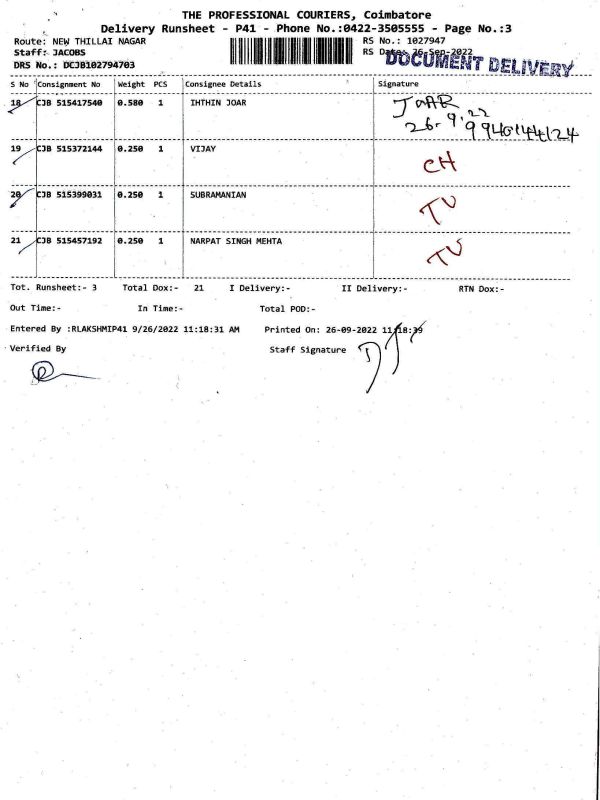 THE PROFESSIONAL COURIERS, Coimbatore
Delivery Runsheet - P41 - Phone No.:0422-3505555 - Page No.:3
Route: NEW THILLAI NAGAR RS No.: 1027947
Staff: JACOBS RS Date: 26-Sep-2022
DOCUMENT DELIVERY
DRS No.: DCJB102794703
S No Consignment No Weight PCS Consignee Details Signature
18 CJB 515417540 0.580 1 IHTHIN JOAR JOAR
26-9.22
9940144124
19 CJB 515372144 0.250 1 VIJAY CH
20 CJB 515399031 0.250 1 SUBRAMANIAN TU
21 CJB 515457192 0.250 1 NARPAT SINGH MEHTA TU
Tot. Runsheet:- 3 Total Dox:- 21 I Delivery:- II Delivery:- RTN Dox:-
Out Time:- In Time:- Total POD:-
Entered By :RLAKSHMIP41 9/26/2022 11:18:31 AM Printed On: 26-09-2022 11:18:39
Verified By Staff Signature